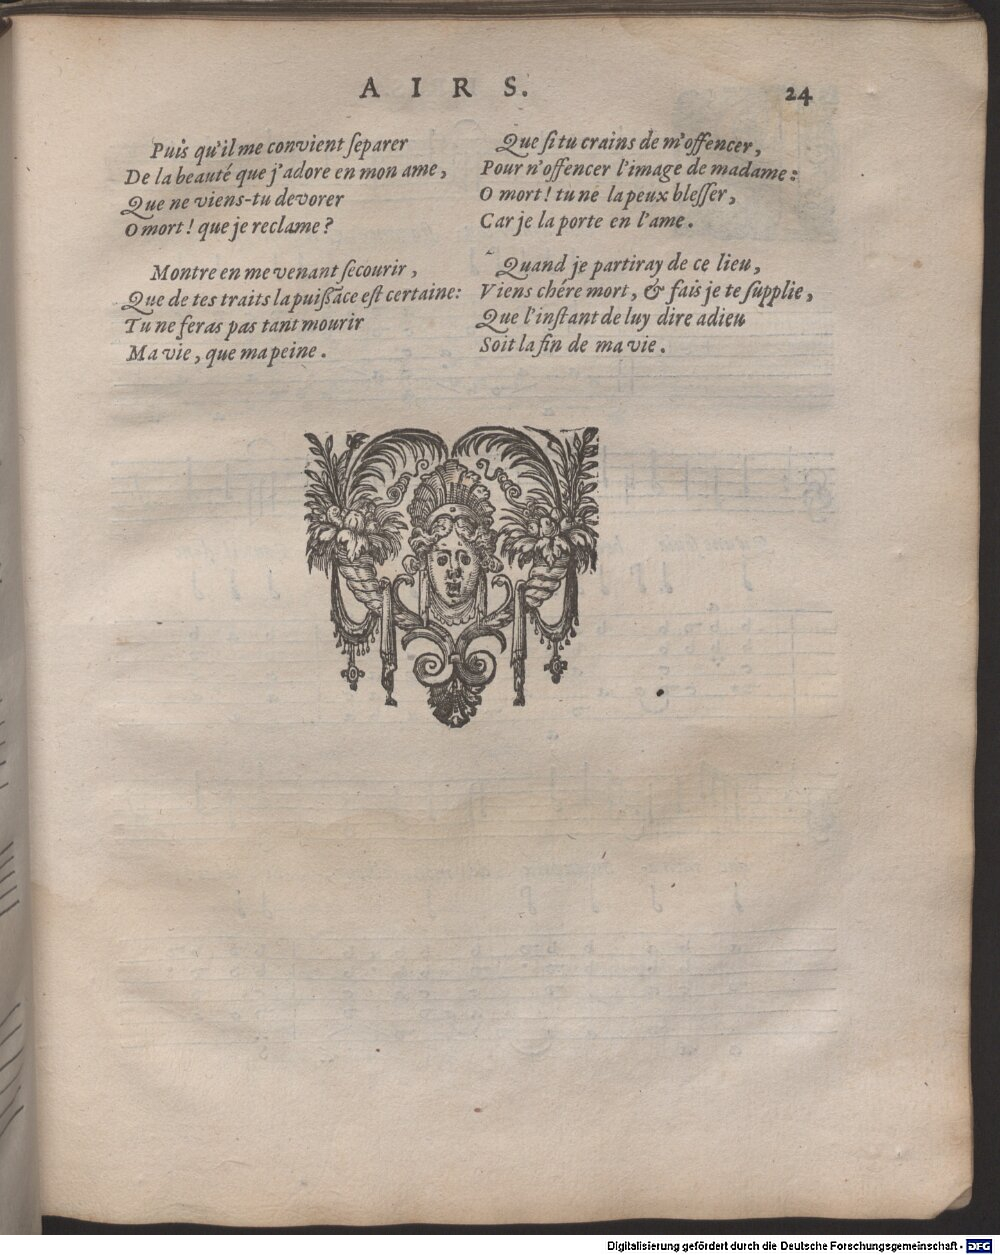 AIRS.
24
Puis qu'il me convient ſeparer
De la beauté que j'adore en mon ame,
Que ne viens-tu devorer
O mort! que je reclame?
Montre en me venant ſecourir,
Que de tes traits la puiſsãce eſt certaine:
Tu ne feras pas tant mourir
Ma vie, que ma peine.
Que ſi tu crains de m'offencer,
Pour n'offencer l'image de madame:
O mort! tu ne la peux bleſſer,
Car je la porte en l'ame.
Quand je partiray de ce lieu,
Viens chére mort, & fais je te ſupplie,
Que l'inſtant de luy dire adieu
Soit la fin de ma vie.
Digitalisierung gefördert durch die Deutsche Forschungsgemeinschaft - DFG